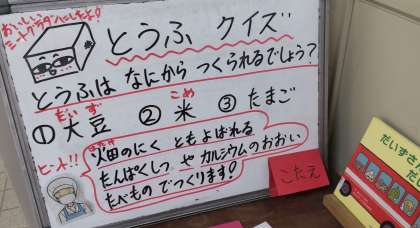 おいしい
ミートグラタンにしたよ！
とうふ クイズ
とうふは なにから つくられるでしょう？
だいず こめ
①大豆 ②米 ③たまご
ヒント!!
はたけ
畑のにく ともよばれる
たんぱくしつ や カルシウムの おおい
たべもの でつくります！
こたえ
だいずさん